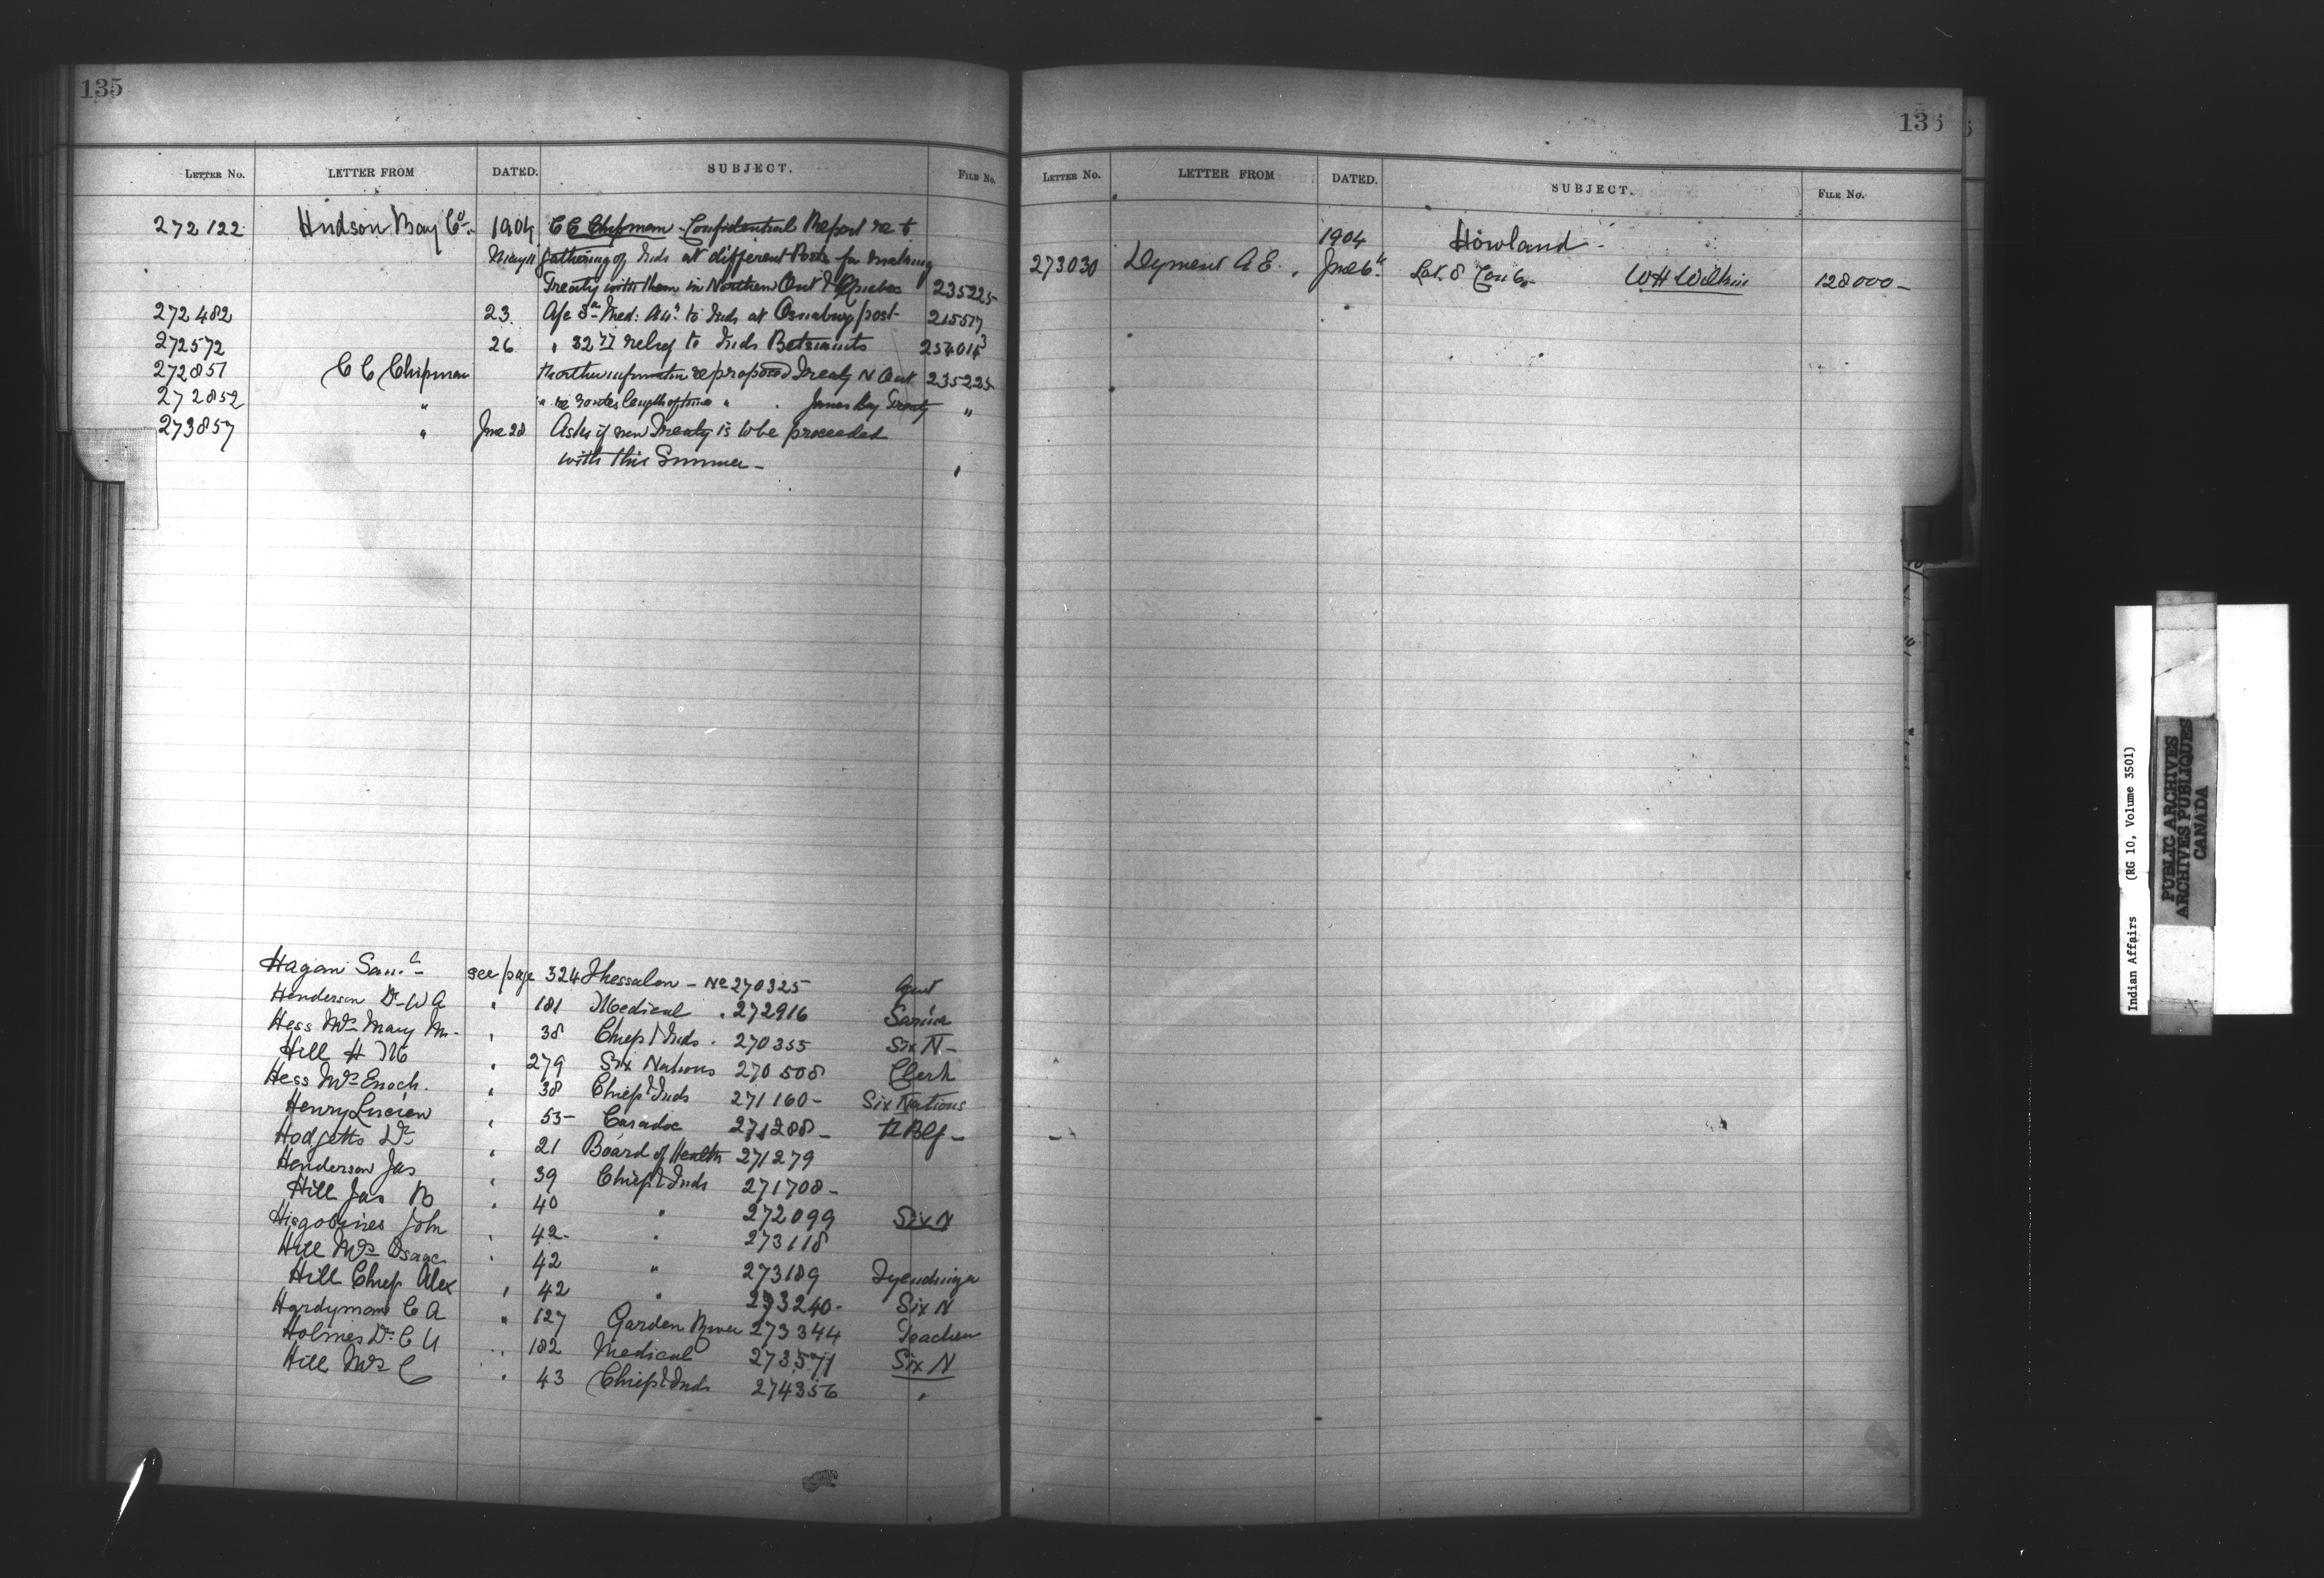 135
LETTER NO. LETTER FROM DATED. SUBJECT. FILE NO.
272122 Hudson Bay Co. 1904 C C Chipman - Confidential Report re t
May 11 gathering of Inds at different Posts for making
Treaty with them in Northern Ont & Quebec 235225
272482 23. Med: to Inds at Osnaburg post 215517
272572 26 " relief to Inds Betsiamits 254014
272851 C C Chipman re proposed Treaty N Ont 235225
272852 " " re routes length of time " James Bay Treaty "
273857 " June 28 Asks if new Treaty is to be proceeded
with this Summer - "
Hagan Saml - see page 324 Thessalon - No 270325 Agent
Henderson Dr W A " 181 Medical . 272916 Sarnia
Hess Mrs Mary M. " 38 Chiefs & Inds . 270355 Six N -
Hill H M " 279 Six Nations 270508 Clerk
Hess Mrs Enoch. " 38 Chiefs & Inds 271160 - Six Nations
Henry Lucien " 55 - Caradoc 271288 -
Hodgetts Dr " 21 Board of Health 271279
Henderson Jas " 39 Chiefs & Inds 271708 -
Hill Jas B " 40 " 272099 Six N
John " 42 - " 273118
Hill Mrs Isaac " 42 " 273189 Tyendinaga
Hill Chief Alex " 42 " 273240 - Six N
Hardyman C A " 127 Garden River 273344 Teacher
Holmes Dr C U " 182 Medical 273571 Six N
Hill Mrs C " 43 Chiefs & Inds 274356 "
136
LETTER NO. LETTER FROM DATED. SUBJECT. FILE NO.
1904 Howland -
273030 Dyment A E. June 6 Lot 8 Con 6 - W H 128000 -
Indian Affairs (RG 10, Volume 3501)
PUBLIC ARCHIVES
ARCHIVES PUBLIQUES
CANADA